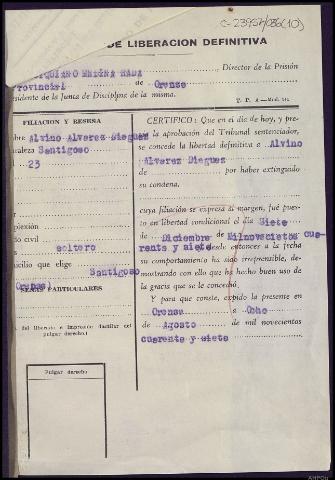 C-23957/036(10)
DE LIBERACION DEFINITIVA
MEDINA RADA, Director de la Prisión
Provincial de Orense
Presidente de la Junta de Disciplina de la misma.
FILIACION Y RESEÑA
Alvino Alvarez Dieguez
Santigoso
23
soltero
que elige
Santigoso
(Orense)
SEÑAS PARTICULARES
del liberado o impresión dactilar del pulgar derecho)
Pulgar derecho
CERTIFICO: Que en el día de hoy, y previa
la aprobación del Tribunal sentenciador,
se concede la libertad definitiva a Alvino
Alvarez Dieguez
por haber extinguido
su condena.
cuya filiación se expresa al margen, fué puesto
en libertad condicional el día Siete
de Diciembre de Milnovecietos cuerenta
y siete desde entonces a la fecha
su comportamiento ha sido irreprensible, demostrando
con ello que ha hecho buen uso de
la gracia que se le concedió.
Y para que conste, expido la presente en
Orense a Ocho
de Agosto de mil novecientos
cuerenta y siete